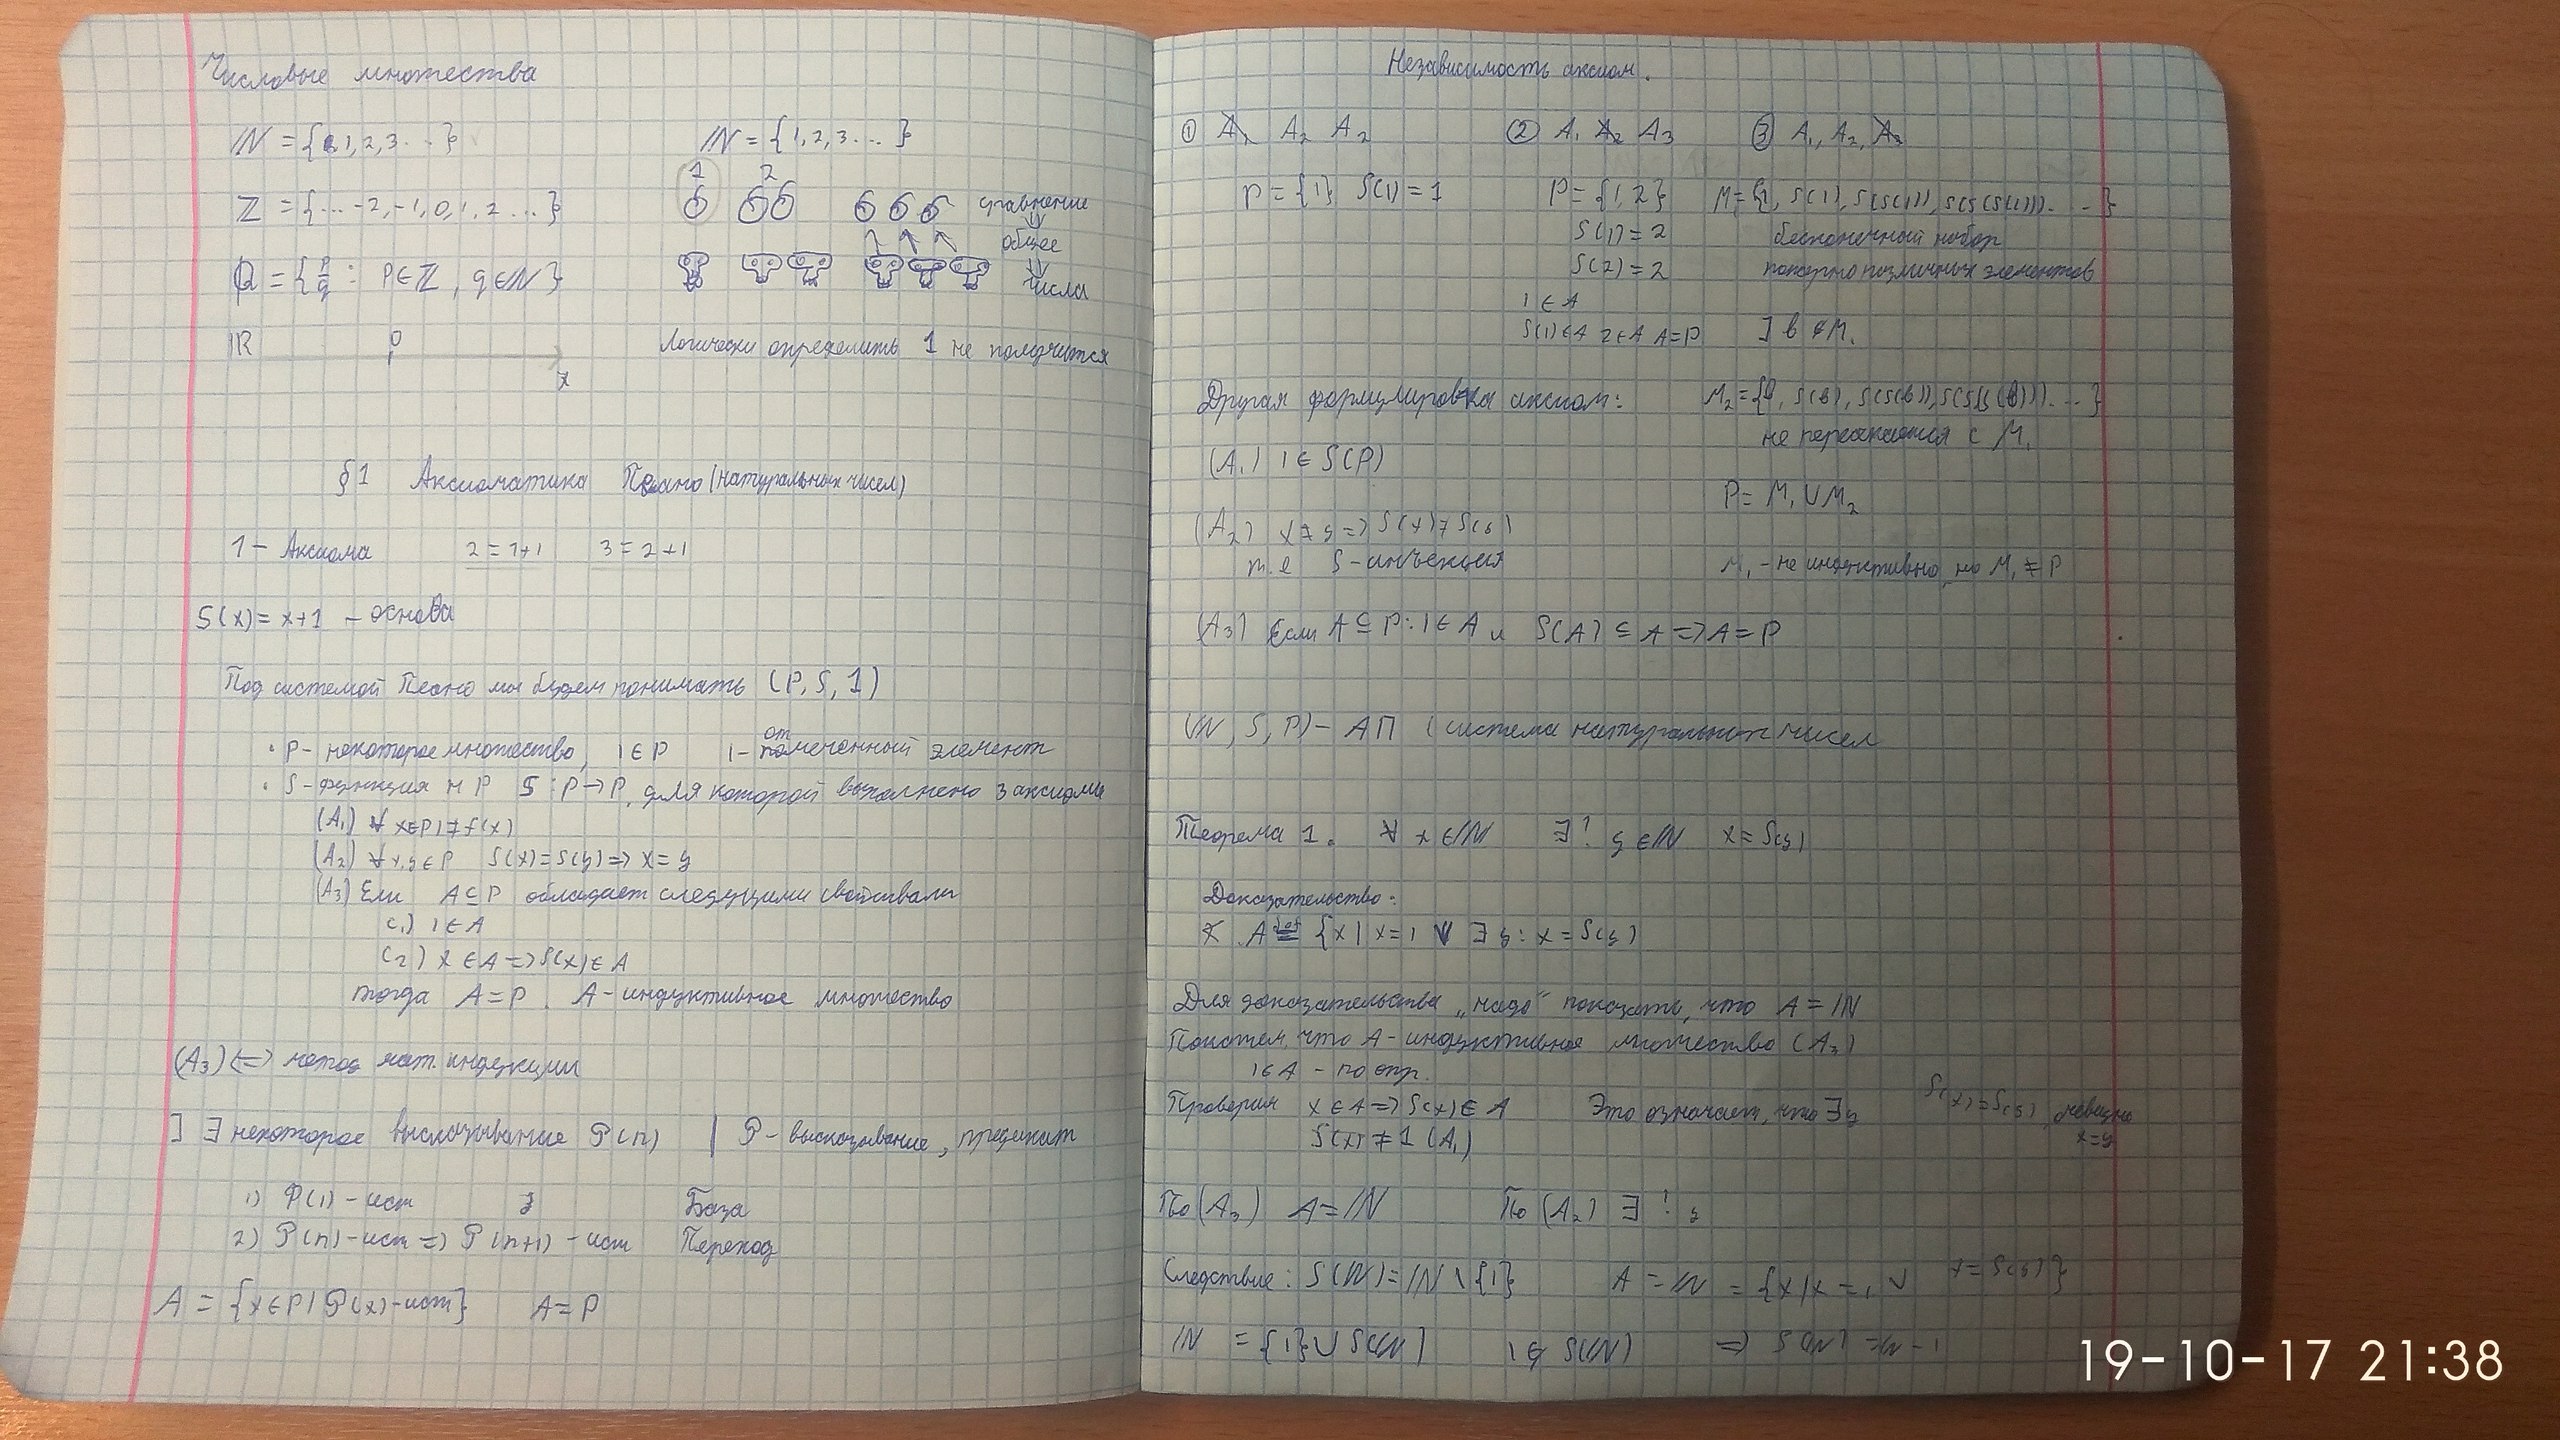 Числовые множества
ℕ = {1, 2, 3 ...}
ℤ = {... -2, -1, 0, 1, 2 ...}
ℚ = {p/q : p∈ℤ, q∈ℕ}
ℝ 0 x
ℕ = {1, 2, 3 ...}
1 2
сравнение
⇓
общее
⇓
числа
Логически определить 1 не получится
§1 Аксиоматика Пеано (натуральных чисел)
1 - Аксиома 2 = 1+1 3 = 2+1
S(x) = x+1 - основа
Под системой Пеано мы будем понимать (P, S, 1)
• P - некоторое множество, 1∈P 1 - отмеченный элемент
• S - функция н P S : P→P, для которой выполнено 3 аксиомы
(A₁) ∀ x∈P 1≠f(x)
(A₂) ∀ x,y∈P S(x)=S(y) => x=y
(A₃) Если A⊆P обладает следующими свойствами
C₁) 1∈A
C₂) x∈A => S(x)∈A
тогда A=P. A - индуктивное множество
(A₃) <=> метод мат. индукции
] ∃ некоторое высказывание P(n) | P - высказывание, предикат
1) P(1) - ист База
2) P(n) - ист => P(n+1) - ист Переход
A = {x∈P | P(x) - ист} A=P
Независимость аксиом.
① A₁ A₂ A₂
P = {1} S(1) = 1
② A₁ A₂ A₃
P = {1, 2}
S(1) = 2
S(2) = 2
1∈A
S(1)∈A 2∈A A=P
③ A₁, A₂, A₃
M₁={1, S(1), S(S(1)), S(S(S(1))) ...}
бесконечный набор
попарно различных элементов
] b ∉ M₁
M₂={b, S(b), S(S(b)), S(S(S(b))) ...}
не пересекается с M₁
P = M₁ ∪ M₂
M₁ - не индуктивно, но M₁ ≠ P
Другая формулировка аксиом:
(A₁) 1∈S(P)
(A₂) x≠y => S(x)≠S(y)
т.е S - инъекция
(A₃) Если A⊆P : 1∈A и S(A)⊆A => A=P
(ℕ, S, P) - АП (система натуральных чисел
Теорема 1. ∀ x∈ℕ ∃! y∈ℕ x = S(y)
Доказательство:
A def= {x | x=1 ∨ ∃ y : x = S(y)}
Для доказательства „надо“ показать, что A = ℕ
Покажем, что A - индуктивное множество (A₃)
1∈A - по опр.
Проверим x∈A => S(x)∈A Это означает, что ∃y S(x)=S(y) очевидно x=y
S(x) ≠ 1 (A₁)
По (A₃) A = ℕ По (A₂) ∃! y
Следствие: S(ℕ) = ℕ \ {1} A = ℕ = {x | x=1 ∨ x = S(y)}
ℕ = {1} ∪ S(ℕ) 1∉S(ℕ) => S(ℕ) = ℕ - 1
19-10-17 21:38